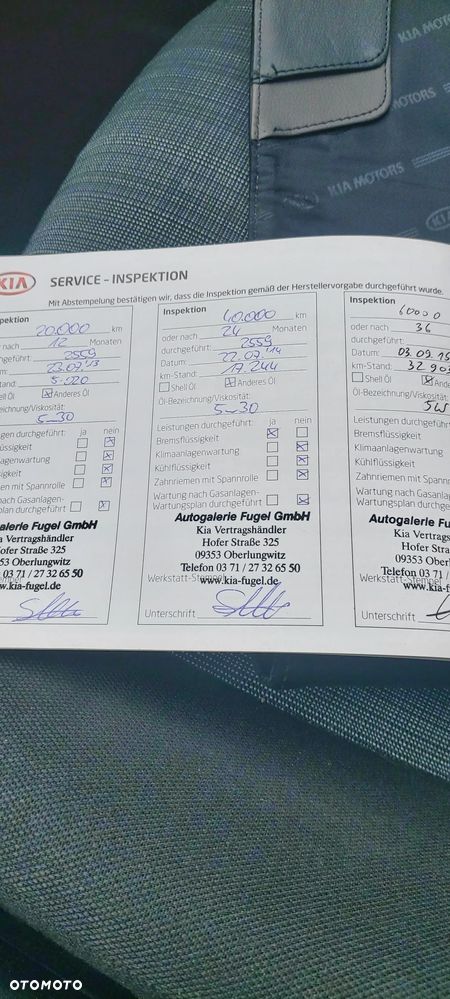 KIA MOTORS
MOTORS
KIA MOTORS
KIA
KIA SERVICE - INSPEKTION
Mit Abstempelung bestätigen wir, dass die Inspektion gemäß der Herstellervorgabe durchgeführt wurde.
pektion
20.000 km
nach 12 Monaten
geführt: 2559
23.07.13
Stand: 5.020
ell Öl Anderes Öl
zeichnung/Viskosität:
5-30
ngen durchgeführt: ja nein
lüssigkeit
lagenwartung
üssigkeit
emen mit Spannrolle
g nach Gasanlagen-
gsplan durchgeführt
talerie Fugel GmbH
Kia Vertragshändler
Hofer Straße 325
09353 Oberlungwitz
03 71 / 27 32 65 50
www.kia-fugel.de
Inspektion
40.000 km
oder nach 24 Monaten
durchgeführt: 2559
Datum: 22.07.14
km-Stand: 17.244
Shell Öl Anderes Öl
Öl-Bezeichnung/Viskosität:
5-30
Leistungen durchgeführt: ja nein
Bremsflüssigkeit
Klimaanlagenwartung
Kühlflüssigkeit
Zahnriemen mit Spannrolle
Wartung nach Gasanlagen-
Wartungsplan durchgeführt
Autogalerie Fugel GmbH
Kia Vertragshändler
Hofer Straße 325
09353 Oberlungwitz
Telefon 03 71 / 27 32 65 50
Werkstatt-Stempel
www.kia-fugel.de
Unterschrift
Inspektion
60000
oder nach 36
durchgeführt:
Datum: 03.09.15
km-Stand: 32 903
Shell Öl Anderes
Öl-Bezeichnung/Viskosität:
5W
Leistungen durchgeführt:
Bremsflüssigkeit
Klimaanlagenwartung
Kühlflüssigkeit
Zahnriemen mit Spannrolle
Wartung nach Gasanlag
Wartungsplan durchgef
Autogalerie Fug
Kia Vertrags
Hofer Stra
09353 Ober
Telefon 03 71 /
Werkstatt-Stempel
www.kia-f
Unterschrift
OTOMOTO